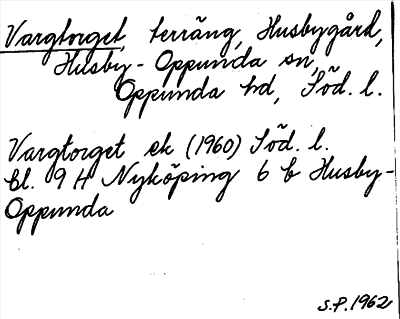 Vargtorget, terräng, Husbygård,
Husby-Oppunda sn,
Oppunda hd, Söd. l.
Vargtorget ek (1960) Söd. l.
bl. 9 H Nyköping 6 b Husby-
Oppunda
S.P. 1962